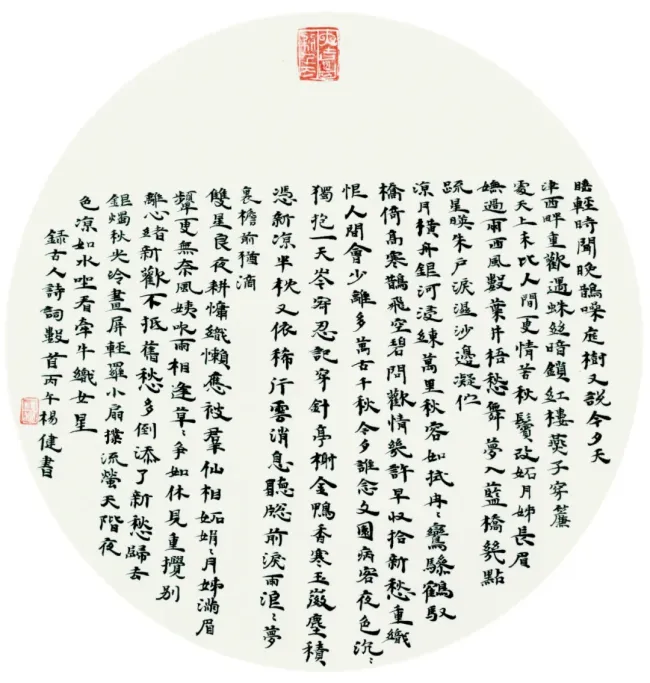 睡輕時聞晚鵲噪庭樹又說今夕天
津西畔重歡遇蛛絲暗鎖紅樓燕子穿簾
處天上未比人間更情苦秋鬢改妬月姊長眉
嫵過雨西風數葉井梧愁舞夢入藍橋幾點
疏星暎朱戶淚濕沙邊凝佇
凉月橫舟銀河浸練萬里秋容如拭冉〻鸞驂鶴馭
橋倚高寒鵲飛空碧問歡情幾許早收拾新愁重織
恨人間會少離多萬古千秋今夕誰念文園病客夜色沉〻
獨抱一天岑寂忍記穿針亭榭金鴨香寒玉徽塵積
憑新凉半枕又依稀行雲消息聽窓前淚雨浪〻夢
裏檐前猶滴
雙星良夜耕慵織懶應被羣仙相妬娟〻月姊滿眉
顰更無奈風姨吹雨相逢草〻爭如休見重攪別
離心緒新歡不抵舊愁多倒添了新愁歸去
銀燭秋光冷畫屏輕羅小扇撲流螢天階夜
色凉如水坐看牽牛織女星
錄古人詩詞數首丙午楊健書